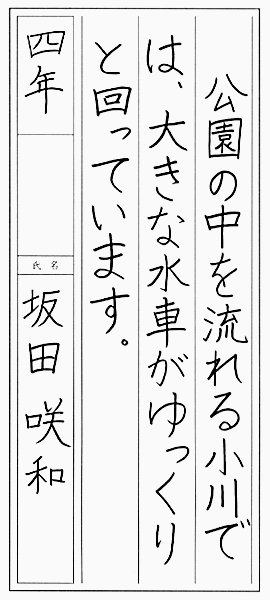 公園の中を流れる小川で
は、大きな水車がゆっくり
と回っています。
四年
氏名
坂田 咲和